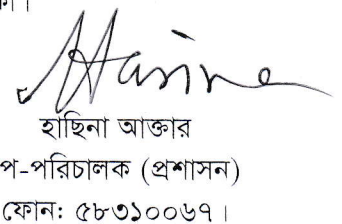 কা।
Hasina
হাছিনা আক্তার
প-পরিচালক (প্রশাসন)
ফোন: ৫৮৩১০০৬৭।